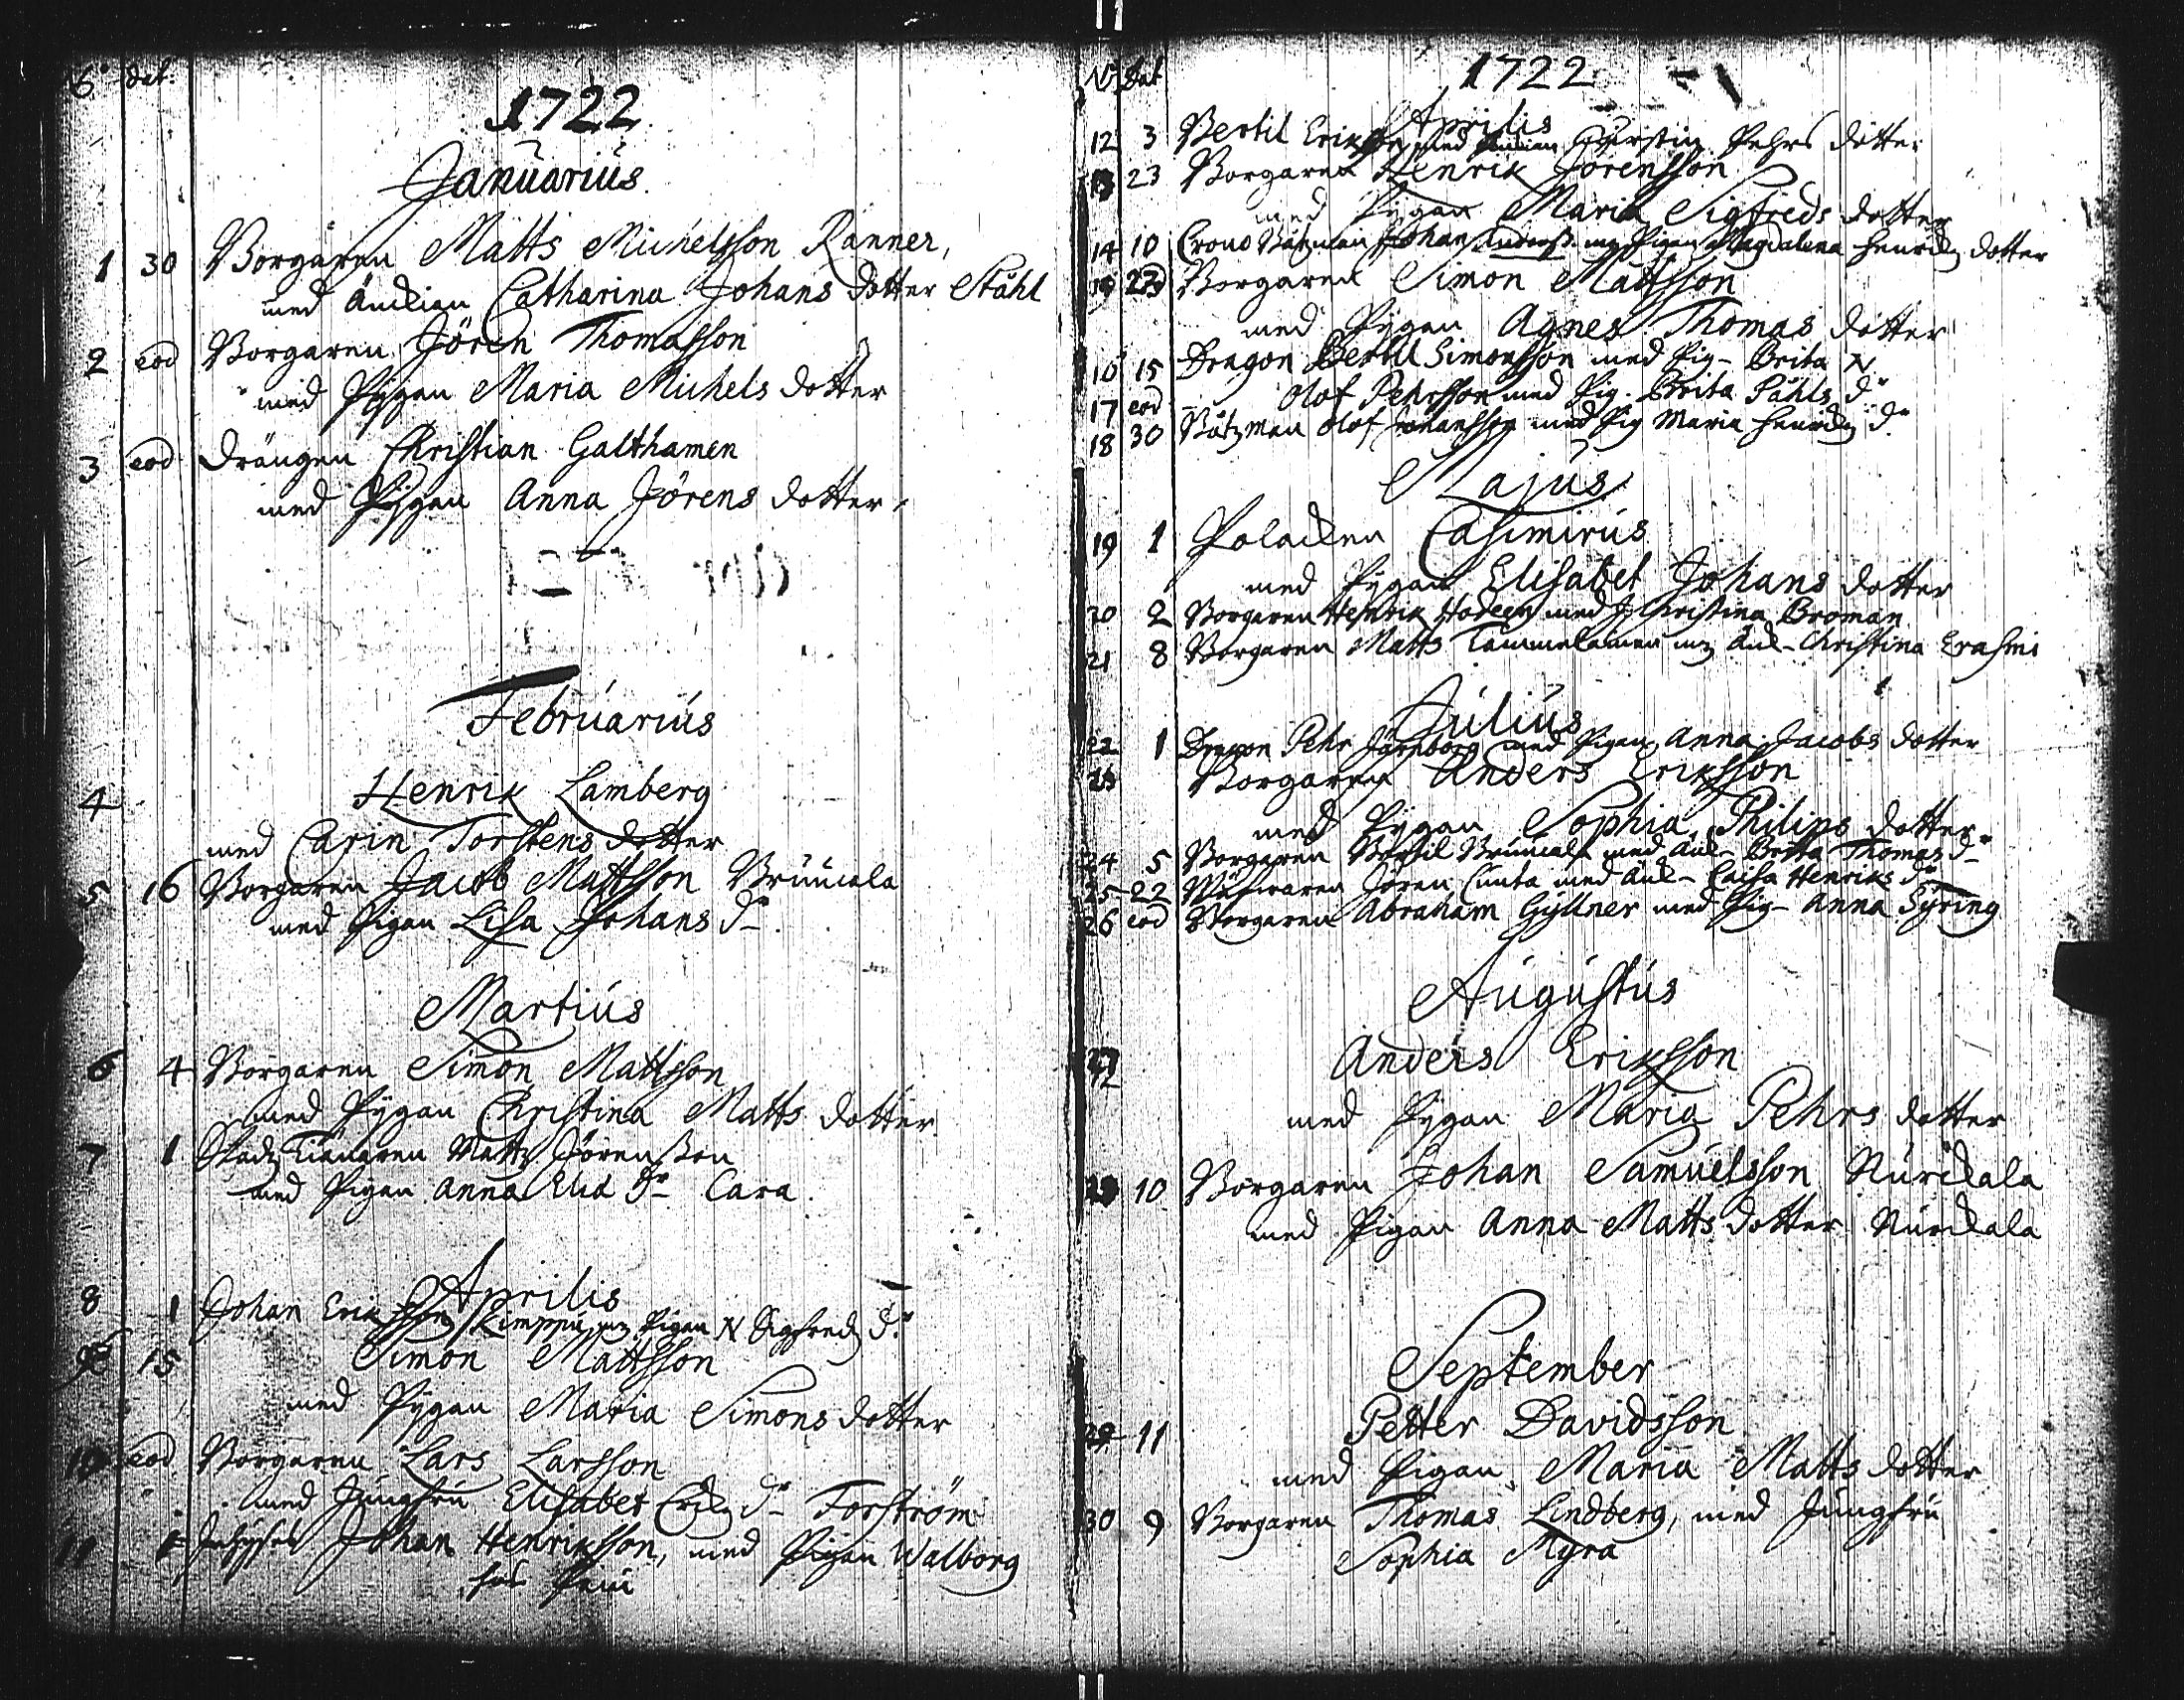 dat:
1722
Januarius
1 30 Borgaren Matts Michelsson Ranner,
med Änckian Catharina Johans dotter Ståhl
2 eod Borgaren Jören Thomasson
med Pÿgan Maria Michels dotter
3 eod Drängen Christian Galthamen
med Pÿgan Anna Jörens dotter
Februarius
4 Henrik Lamberg
med Carin Torstens dotter
5 16 Borgaren Jacob Mattsson
med Pigan Lisa Johans dr
Martius
6 4 Borgaren Simon Mattsson
med Pÿgan Christina Matts dotter
7 1 Matts Jörensson
med Pigan Anna dr Cara
Aprilis
8 1 Johan Eriksson Kimppu Pigan N Sigfreds dr
15 Simon Mattsson
med Pÿgan Maria Simons dotter
10 eod Borgaren Lars Larsson
med Jungfru Elisabet Erics dr Forström
11 Johan Henriksson, med Pigan Walborg
N Dat
1722
Aprilis
12 3 Bertil Eriksson med Änckian Cherstin Pehrs dotter
13 23 Borgaren Henrik Jörensson
med Pÿgan Maria Sigfreds dotter
14 10 Crono Båtzman Johan Anderss. Pigan Magdalena Henrichs dotter
Borgaren Simon Mattsson
med Pÿgan Agnes Thomas dotter
16 15 Dragon Bertil Simonsson med Pig- Brita N
17 eod Olof Pehrsson med Pig. Brita Påhls dr
18 30 Båtzman Olof Johansson med Pig Maria Henrichs dr
Majus
19 1 Polacken Casimirus
med Pÿgan Elisabet Johans dotter
20 2 Borgaren Henrik Hodeen med J. Christina Broman
21 8 Borgaren Matts Tammelainen Änk- Christina Erasmi
Julius
22 1 Dragon Pehr Järnborg med Pigan Anna Jacobs dotter
23 Borgaren Anders Eriksson
med Pÿgan Sophia Philips dotter
24 5 Borgaren Bertil med Änk- Brita Thomas dr
25 22 Jören Cunta med Änk- Caisa Henriks dr
26 eod Borgaren Abraham Gÿllner med Pig- Anna Sÿring
Augustus
27 Anders Eriksson
med Pÿgan Maria Pehrs dotter
10 Borgaren Johan Samuelsson Nurckala
med Pigan Anna Matts dotter Nurckala
September
29 11 Petter Davidsson
med Pigan Maria Matts dotter
30 9 Borgaren Thomas Lindberg, med Jungfru
Sophia Mÿra